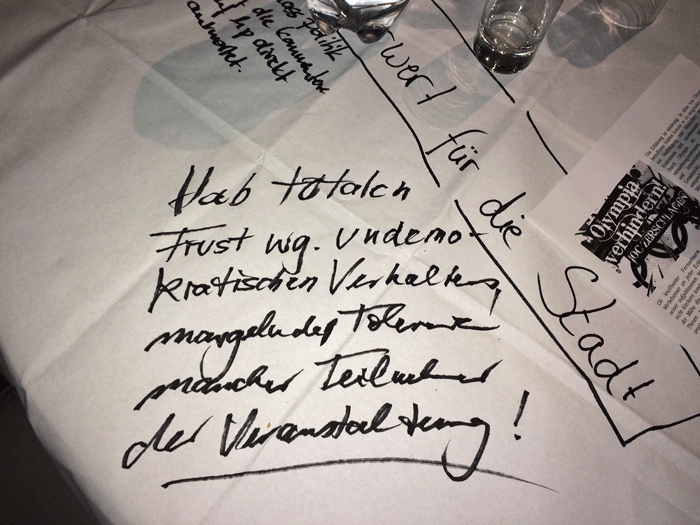 ass politik
die Kommentare
direkt
antwortet.
wert für die Stadt
Hab totalen
Frust wg. undemo-
kratischen Verhaltens,
mangelnder Toleranz
mancher Teilnehmer
der Veranstaltung!
Olympia
verhindern!
IOC ZERSCHLAGEN